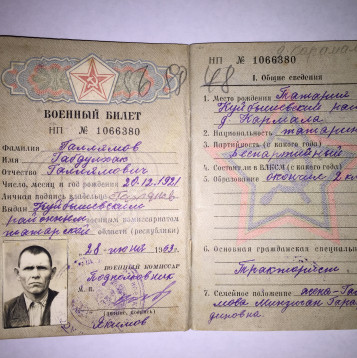 56
ВОЕННЫЙ БИЛЕТ
НП № 1066380
Фамилия Галлямов
Имя Габдулхак
Отчество Галлямович
Число, месяц и год рождения 20.12.1921
Личная подпись владельца
Выдан Куйбышевским
районным военным комиссариатом
татарской области (республики)
28 июня 1963г.
ВОЕННЫЙ КОМИССАР
Подполковник
Якимов
д. Кармала
НП № 1066380
48
I. Общие сведения
1. Место рождения Татария
Куйбышевский рай
д. Кармала
2. Национальность татарин
3. Партийность (с какого года)
Беспартийный
4. Состоит ли в ВЛКСМ (с какого года)
5. Образование окончил 2 кл
6. Основная гражданская специальн
Тракторист
7. Семейное положение жена-Галля
мова